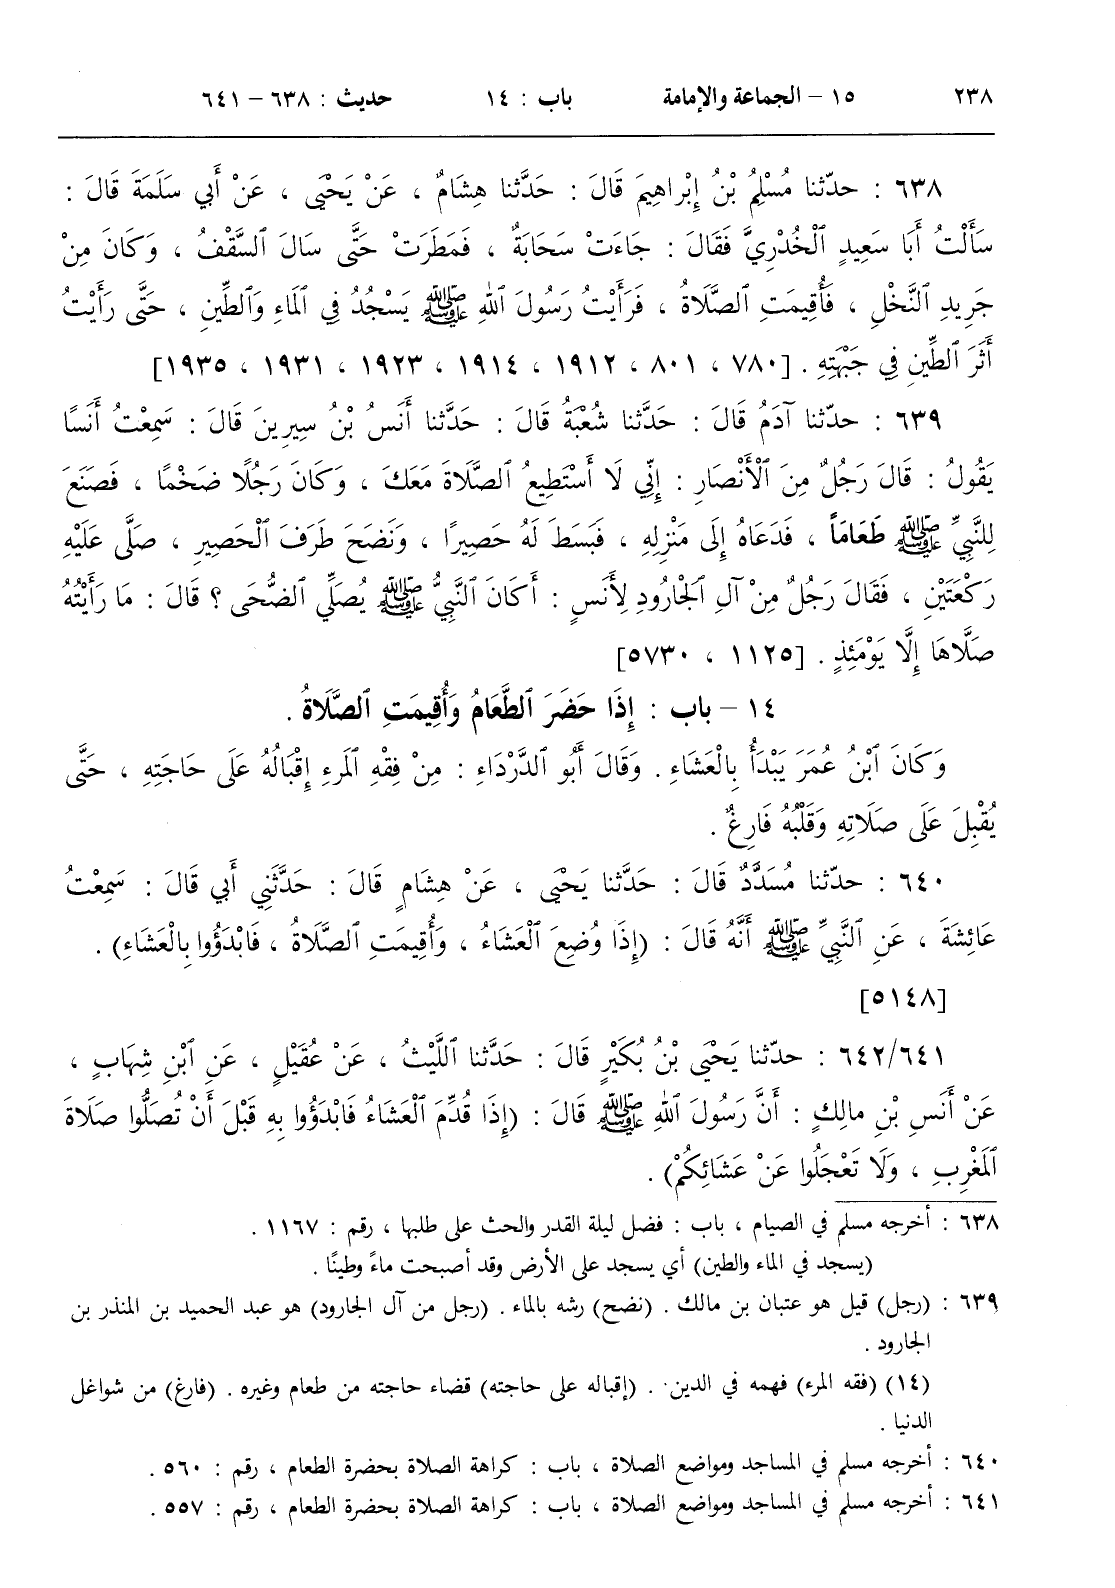 ٢٣٨ ١٥ – الجماعة والإمامة باب : ١٤ حديث : ٦٣٨ – ٦٤١
٦٣٨ : حدّثنا مُسْلِمُ بْنُ إِبْراهِيمَ قَالَ : حَدَّثنا هِشَامٌ ، عَنْ يَحْيَى ، عَنْ أَبي سَلَمَةَ قَالَ :
سَأَلْتُ أَبَا سَعِيدٍ ٱلْخُدْرِيَّ فَقَالَ : جَاءَتْ سَحَابَةٌ ، فَمَطَرَتْ حَتَّى سَالَ ٱلسَّقْفُ ، وَكَانَ مِنْ
جَرِيدِ ٱلنَّخْلِ ، فَأُقِيمَتِ ٱلصَّلَاةُ ، فَرَأَيْتُ رَسُولَ ٱللهِ ﷺ يَسْجُدُ فِي ٱلمَاءِ وَٱلطِّينِ ، حَتَّى رَأَيْتُ
أَثَرَ ٱلطِّينِ فِي جَبْهَتِهِ . [٧٨٠ ، ٨٠١ ، ١٩١٢ ، ١٩١٤ ، ١٩٢٣ ، ١٩٣١ ، ١٩٣٥]
٦٣٩ : حدّثنا آدَمُ قَالَ : حَدَّثنا شُعْبَةُ قَالَ : حَدَّثنا أَنَسُ بْنُ سِيرِينَ قَالَ : سَمِعْتُ أَنَسًا
يَقُولُ : قَالَ رَجُلٌ مِنَ ٱلْأَنْصَارِ : إِنِّي لَا أَسْتَطِيعُ ٱلصَّلَاةَ مَعَكَ ، وَكَانَ رَجُلًا ضَخْمًا ، فَصَنَعَ
لِلنَّبِيِّ ﷺ طَعَاماً ، فَدَعَاهُ إِلَى مَنْزِلِهِ ، فَبَسَطَ لَهُ حَصِيرًا ، وَنَضَحَ طَرَفَ ٱلْحَصِيرِ ، صَلَّى عَلَيْهِ
رَكْعَتَيْنِ ، فَقَالَ رَجُلٌ مِنْ آلِ ٱلجَارُودِ لِأَنَسٍ : أَكَانَ ٱلنَّبِيُّ ﷺ يُصَلِّي ٱلضُّحَى ؟ قَالَ : مَا رَأَيْتُهُ
صَلَّاهَا إِلَّا يَوْمَئِذٍ . [١١٢٥ ، ٥٧٣٠]
١٤ – باب : إِذَا حَضَرَ ٱلطَّعَامُ وَأُقِيمَتِ ٱلصَّلَاةُ .
وَكَانَ ٱبْنُ عُمَرَ يَبْدَأُ بِالْعَشَاءِ . وَقَالَ أَبُو ٱلدَّرْدَاءِ : مِنْ فِقْهِ ٱلمَرءِ إِقْبَالُهُ عَلَى حَاجَتِهِ ، حَتَّى
يُقْبِلَ عَلَى صَلَاتِهِ وَقَلْبُهُ فَارِغٌ .
٦٤٠ : حدّثنا مُسَدَّدٌ قَالَ : حَدَّثنا يَحْيَى ، عَنْ هِشَامٍ قَالَ : حَدَّثَنِي أَبي قَالَ : سَمِعْتُ
عَائِشَةَ ، عَنِ ٱلنَّبِيِّ ﷺ أَنَّهُ قَالَ : (إِذَا وُضِعَ ٱلْعَشَاءُ ، وَأُقِيمَتِ ٱلصَّلَاةُ ، فَابْدَؤُوا بِالْعَشَاءِ) .
[٥١٤٨]
٦٤٢/٦٤١ : حدّثنا يَحْيَى بْنُ بُكَيْرٍ قَالَ : حَدَّثنا ٱللَّيْثُ ، عَنْ عُقَيْلٍ ، عَنِ ٱبْنِ شِهَابٍ ،
عَنْ أَنَسِ بْنِ مالِكٍ : أَنَّ رَسُولَ ٱللهِ ﷺ قَالَ : (إِذَا قُدِّمَ ٱلْعَشَاءُ فَابْدَؤُوا بِهِ قَبْلَ أَنْ تُصَلُّوا صَلَاةَ
ٱلمَغْرِبِ ، وَلَا تَعْجَلُوا عَنْ عَشَائِكُمْ) .
٦٣٨ : أخرجه مسلم في الصيام ، باب : فضل ليلة القدر والحث على طلبها ، رقم : ١١٦٧ .
(يسجد في الماء والطين) أي يسجد على الأرض وقد أصبحت ماءً وطينًا .
٦٣٩ : (رجل) قيل هو عتبان بن مالك . (نضح) رشه بالماء . (رجل من آل الجارود) هو عبد الحميد بن المنذر بن
الجارود .
(١٤) (فقه المرء) فهمه في الدين . (إقباله على حاجته) قضاء حاجته من طعام وغيره . (فارغ) من شواغل
الدنيا .
٦٤٠ : أخرجه مسلم في المساجد ومواضع الصلاة ، باب : كراهة الصلاة بحضرة الطعام ، رقم : ٥٦٠ .
٦٤١ : أخرجه مسلم في المساجد ومواضع الصلاة ، باب : كراهة الصلاة بحضرة الطعام ، رقم : ٥٥٧ .